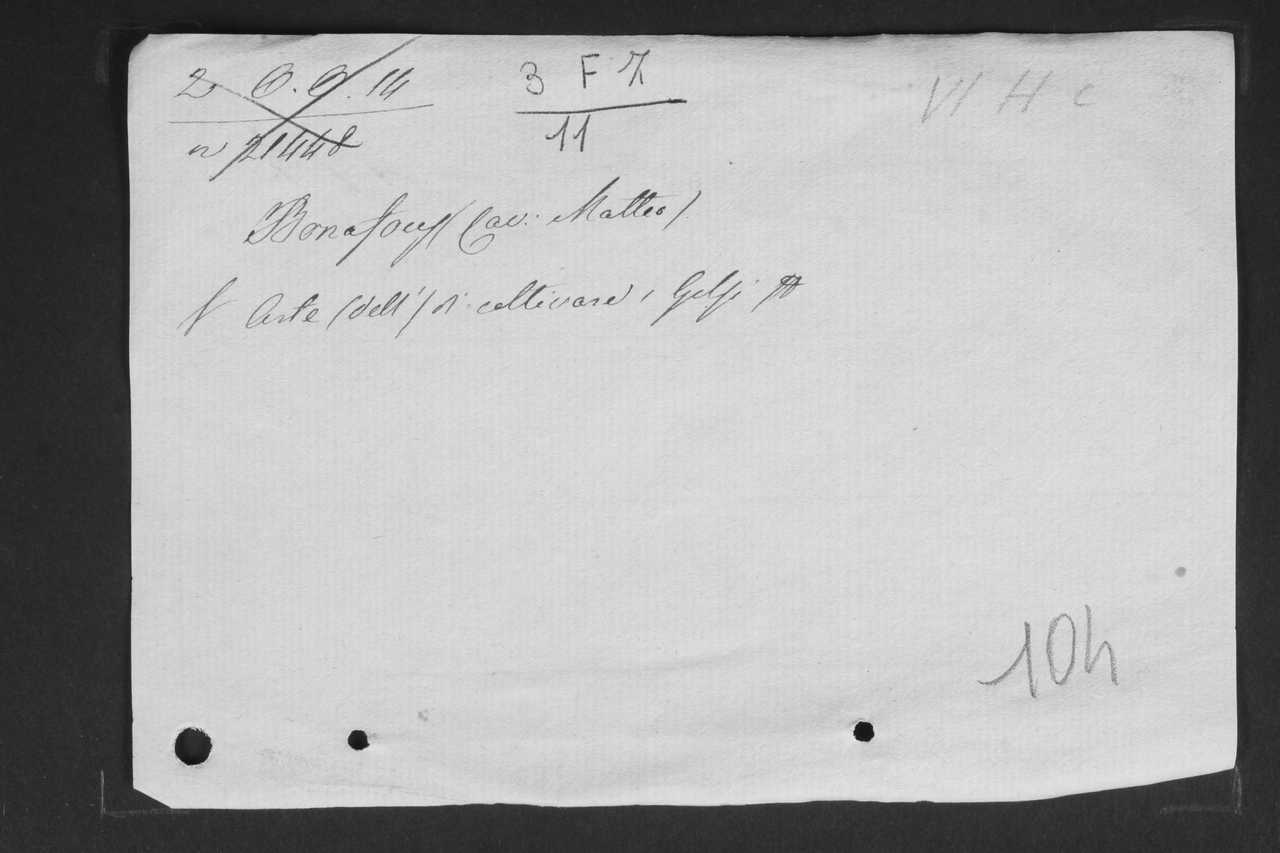 2 O.O.14
3 F 7
VI H c
n 21448
11
Bonafous (Cav: Matteo)
Arte (dell') di coltivare i Gelsi
104